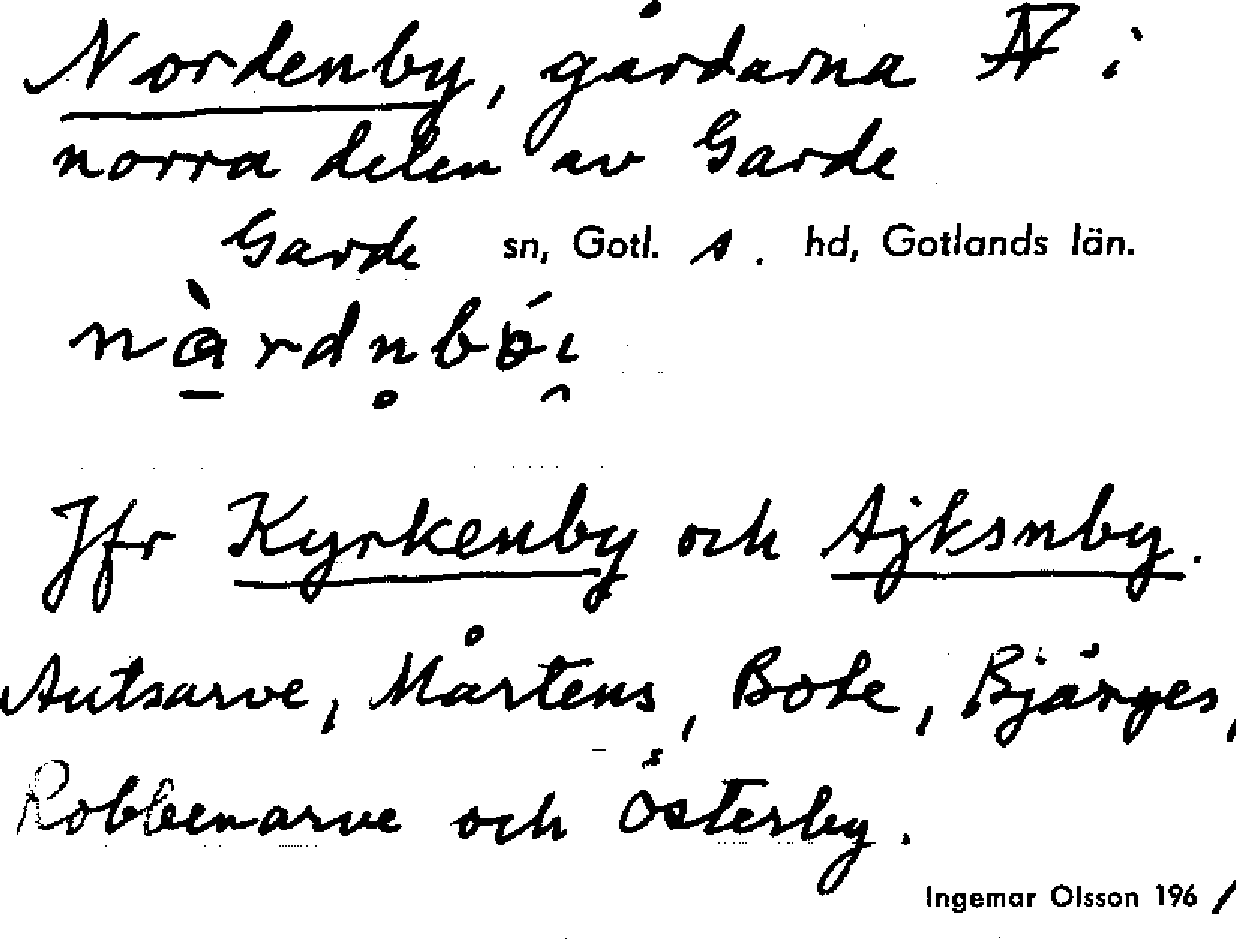 Nordenby, gårdarna i
norra delen av Garde
Garde sn, Gotl. s. hd, Gotlands län.
Jfr Kyrkenby och Ajksnby.
Autsarve, Mårtens, Bote, Bjärges,
Robbenarve och Österby.
Ingemar Olsson 1961